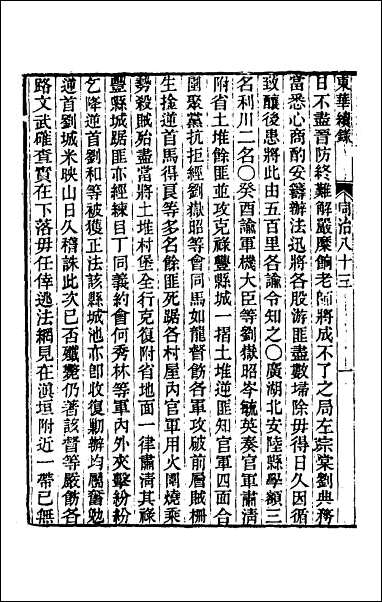 東華續錄 同治八十三 一
日不盡晉防終難解嚴糜餉老師將成不了之局左宗棠劉典務
當悉心商酌妥籌辦法迅將各股游匪盡數埽除毋得日久因循
致釀後患將此由五百里各諭令知之○廣湖北安陸縣學額三
名利川二名○癸酉諭軍機大臣等劉嶽昭岑毓英奏官軍肅清
附省土堆餘匪並攻克祿豐縣城一摺土堆逆匪知官軍四面合
圍聚黨抗拒經劉嶽昭等會同馬如龍督飭各軍攻破前層賊柵
生擒逆首馬得良等多名餘匪死踞各村屋內官軍用火圍燒乘
勢殺賊殆盡當將土堆村堡全行克復附省地面一律肅清其祿
豐縣城踞匪亦經練目丁同義約會何秀林等軍內外夾擊紛紛
乞降逆首劉和等被獲正法該縣城池亦卽收復勦辦均屬奮勉
逆首劉城米映山日久稽誅此次已否殲斃仍著該督等嚴飭各
路文武確查實在下落毋任倖逃法網見在滇垣附近一帶已無